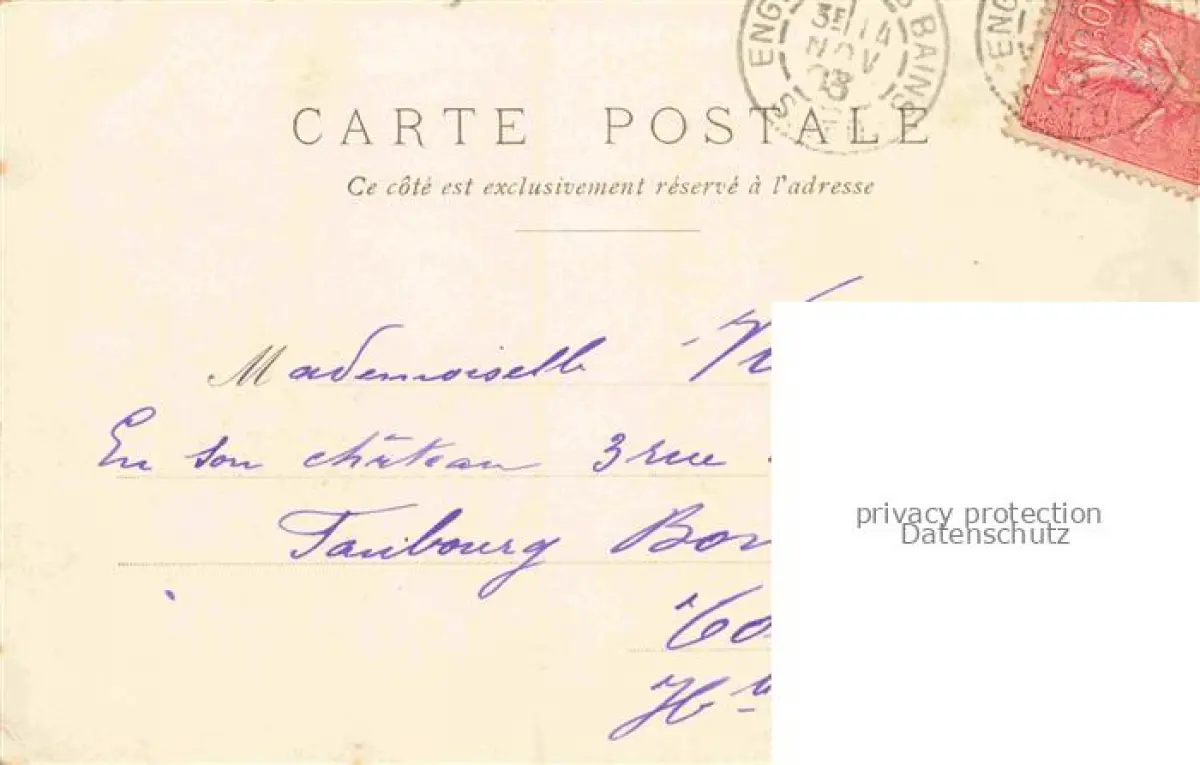 ENG BAINS
3E 14
NOV
03
S
ENG
CARTE POSTALE
Ce côté est exclusivement réservé à l'adresse
Mademoiselle
En son château 3 rue
Faubourg Bon
H te
privacy protection
Datenschutz